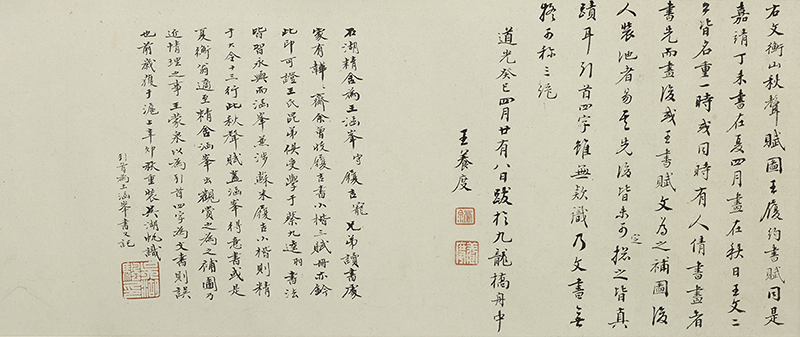 右文衡山秋聲賦圖王履約書賦同是
嘉靖丁未書在夏四月畫在秋日王文二
公皆名重一時或同時有人倩書畫者
書先而畫後或王書賦文為之補圖後
人裝池者易其先後皆未可定揔之皆真
蹟耳引首四字雖無款識乃文畫無
疑可称三絶
道光癸巳四月廿有八日跋於九龍橋舟中
王養度
石湖精舍為王涵峯守履吉寵兄弟讀書處
家有韡韡齋余曾收履吉書小楷三賦冊亦鈐
此印可證王氏昆弟俱受學于蔡九逵羽書法
皆習永興而涵峯兼涉蘇米履吉小楷則精
于大令十三行此秋聲賦蓋涵峯得意書或是
夏衡翁適至精舍涵峯出觀賞之為之補圖乃
近情理之事王蒙泉以為引首四字為文書則誤
也前歲獲于滬上辛卯秋重裝吳湖帆識
引首為王涵峯書又記